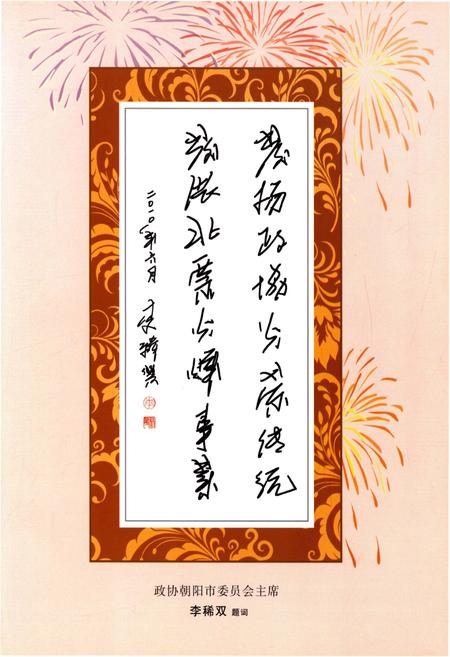 发扬政协光荣传统
发展北票光辉事業
二〇一〇年六月 李稀双
政协朝阳市委员会主席
李稀双 题词